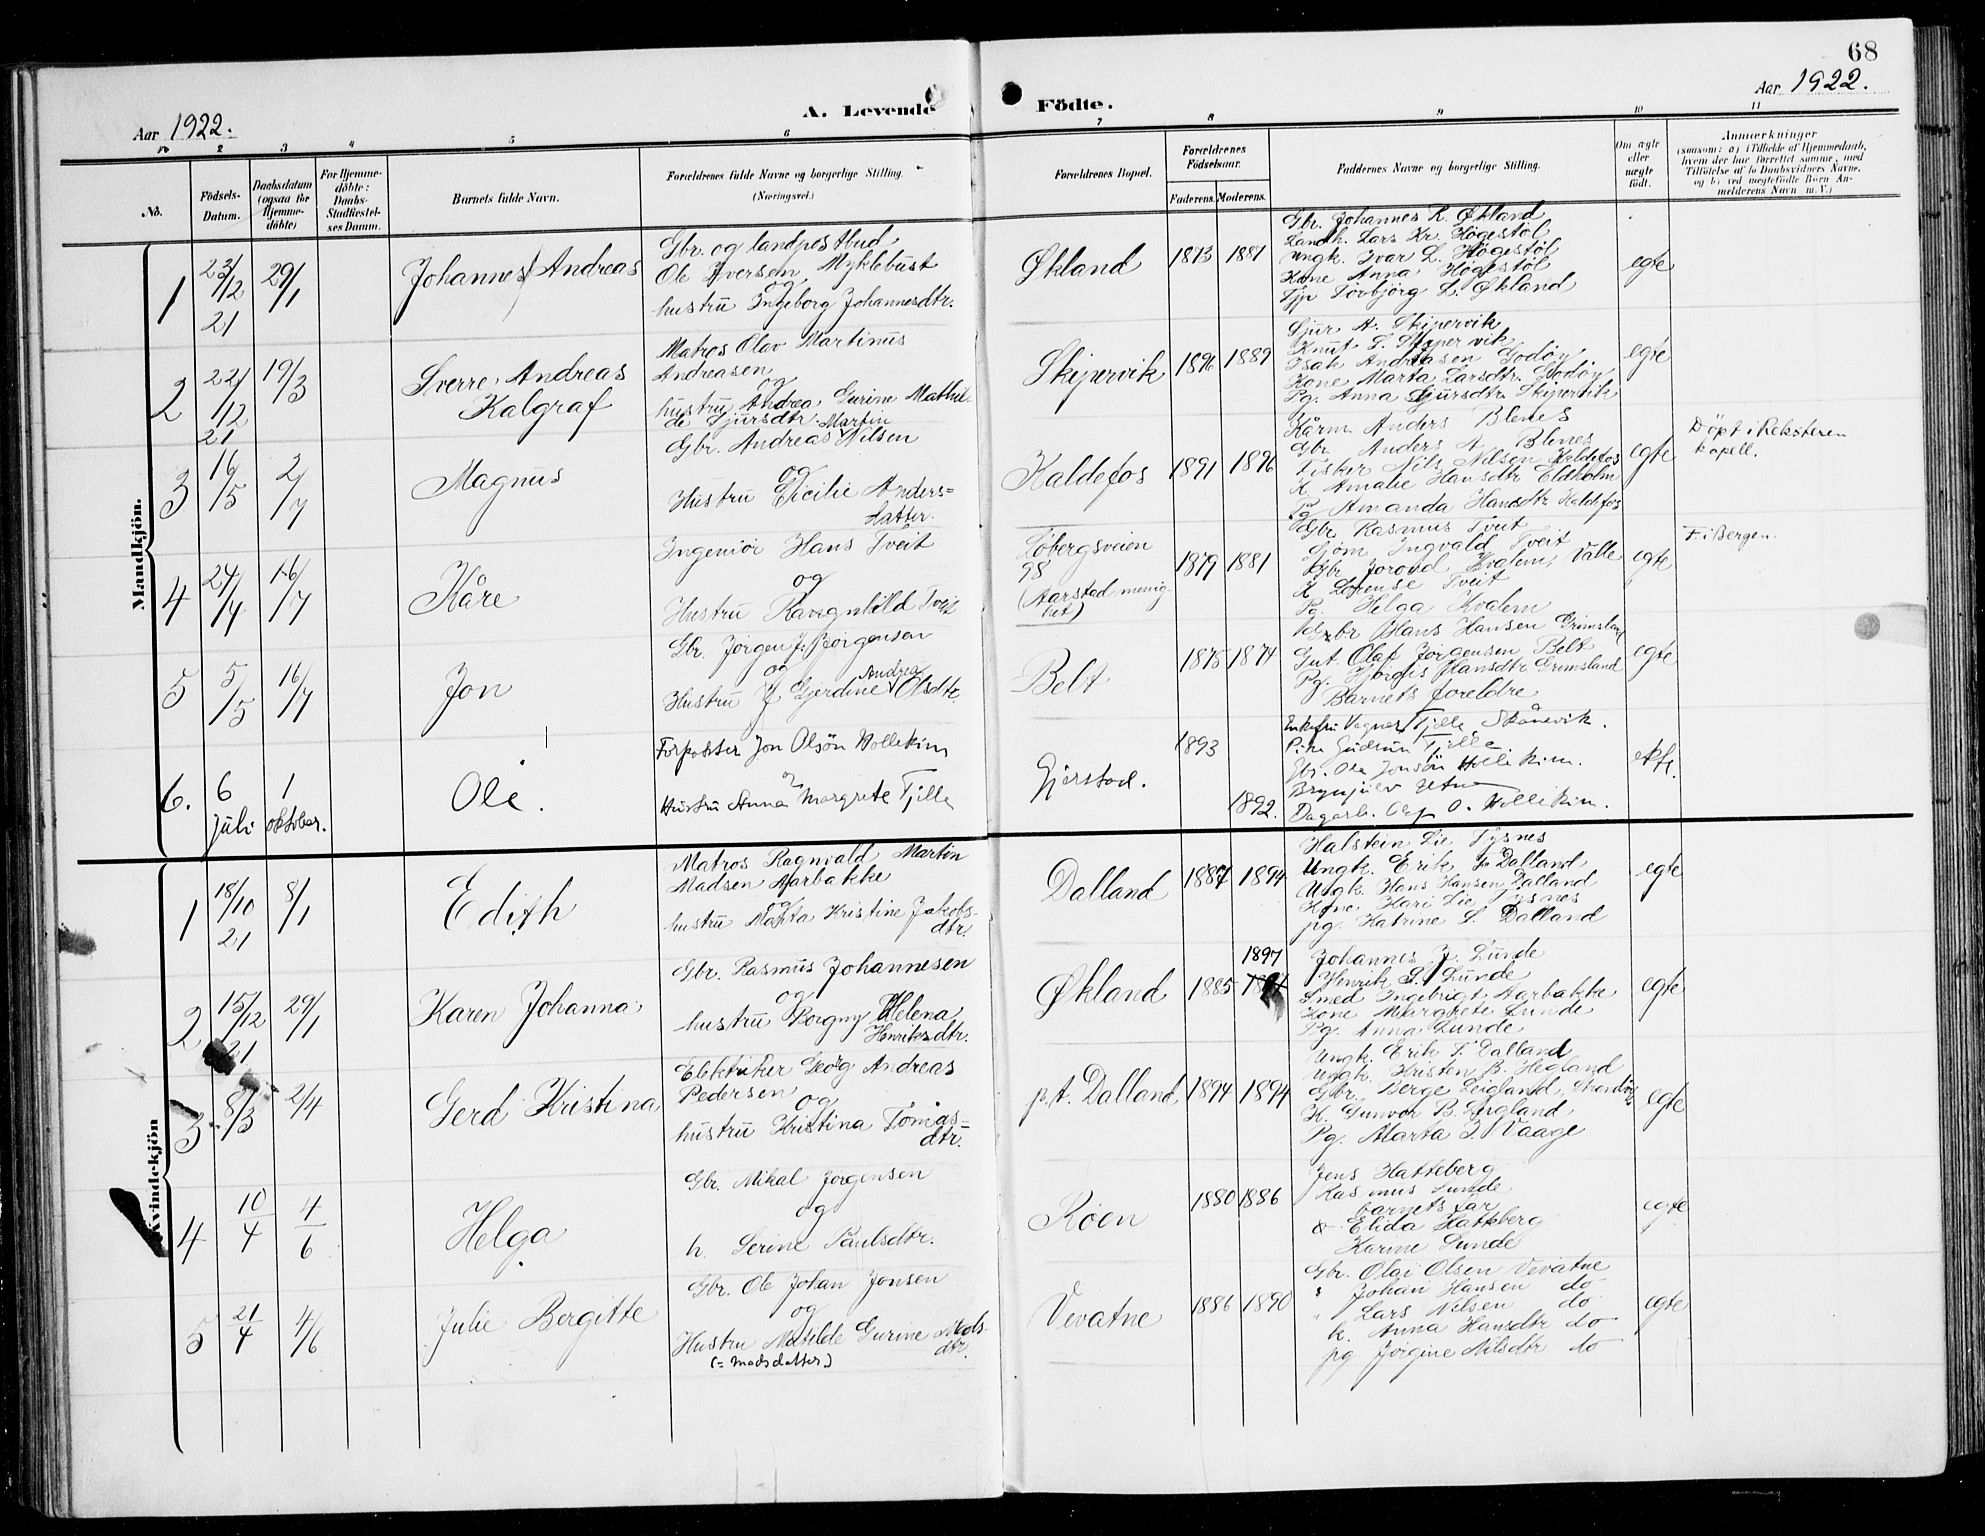 68
Aar 1922.
A. Levende Födte.
Aar 1922.
No.
Födsels-Datum.
Daabsdatum (ogsaa for Hjemme-döbte)
For Hjemme-döbte: Daabs-Stadfæstel-ses Datum.
Barnets fulde Navn.
Forældrenes fulde Navne og borgerlige Stilling.
(Næringsvei.)
Forældrenes Bopæl.
Forældrenes Födselsaar.
Faderens. Moderens.
Faddernes Navne og borgerlige Stilling.
Om ægte eller uægte födt.
Anmærkninger
(saasom: a) i Tilfælde af Hjemmedaab, hvem der har forrettet samme, med Tilföielse af to Daabsvidners Navne, og b) ved uægtefödte Börn An-melderens Navn m. V.)
Mandkjön.
1
23/12 21
29/1
Johannes Andreas
Gbr. og landpostbud
Ole Iversen Myklebust
og
hustru Ingeborg Johannesdtr.
Økland
1873
1881
Gbr. Johannes L. Økland
Landh. Lars Kr. Høgestöl
Ungk. Ivar L. Høgestöl
Kone Anna Høgestöl
Pp Torbjörg L. Økland
egte
2
22/12 21
19/3
Sverre Andreas
Kalgraf
Matros Olav Martinus
Andreasen
og
hustru Andrea Gurine Mathil-
de Sjursdtr.
Skipervik
1896
1889
Sjur A. Skipervik
Knut S. Skipervik
Isak Andreasen Godöy
Kone Marta Larsdtr. Godöy
Pg. Anna Sjursdtr. Skipervik
egte
3
16/5
2/7
Magnus
Gbr. Andreas Martin Nilsen
og
Hustru Cicilie Anders=
datter.
Kaldefos
1891
1896
Kårm. Anders Blenes
Gbr. Anders A. Blenes
Fisker Nils Nilsen Kaldefos
K. Amalie Hansdtr Eldholm
Pg Amanda Hansdtr Kaldefos
egte
Döpt i Reksteren
kapell.
4
24/4
16/7
Kåre
Ingeniör Hans Tveit
og
Hustru Ragnhild Tveit
98
(Aarstad menig
het)
1879
1881
Gbr. Rasmus Tveit
Ingvald Tveit
Kvalem, Valle
K. Lorense Tveit
Pg. Helga Kvalem
egte
F. i Bergen.
5
5/5
16/7
Jon
Gbr. Jørgen J. Jørgensen
og
Hustru J Gjerdine Andrea Olsdtr.
Belt
1875
1874
Gbr Hans Hansen Grimsland
Gut. Olaf Jørgensen Belt
Pg. Hjørdis Hansdtr. Grimsland
Barnets foreldre
egte
6.
6 juli
1 oktober.
Ole.
Forpakter Jon Olsön Hollekim
og
Hustru Anna Margrete Tjelle
Gjerstad.
1893
1892.
Enkefru Vagner Tjelle, Skånevik.
Pike Gudrun Tjelle
Gbr. Ole Jonsön Hollekim.
Brynjulv Utne
Dagarb. O. Hollekim.
ekte.
Kvindekjön
1
18/10 21
8/1
Edith
Matros Ragnvald Martin
Madsen Aarbakke
og
hustru Marta Kristine Jakobs-
dtr.
Dalland
1887
1894
Halstein Lie Tysnes
Ungk. Erik J. Dalland
Ungk. Hans Hansen Dalland
Kone Kari Lie Tysnes
pg. Katrine S. Dalland
egte
2
15/12 21
29/1
Karen Johanna
Gbr. Rasmus Johannesen
og
hustru Borgny Helena
Henriksdtr.
Økland
1885
1897
Johannes J. Lunde
Henrik S. Lunde
Smed Ingebrigt Aarbakke
Kone Margrete Lunde
Pg. Anna Lunde
egte
3
8/3
2/4
Gerd Kristina
Elektriker Georg Andreas
Pedersen
og
hustru Kristina Tomas=
dtr.
p.t. Dalland
1894
1894
Ungk. Erik S. Dalland
Ungk. Kristen B. Hegland
Gbr. Berge Leigland, Strandvik
K. Gunvor B. Leigland
Pg. Marta J. Vaage
egte
4
10/4
4/6
Helga
Gbr. Mikal Jørgensen
og
h. Serine Paulsdtr.
Röen
1880
1886
Jens Hatteberg
Rasmus Lunde
barnets far
& Elida Hatteberg
Karine Lunde
egte
5
21/4
4/6
Julie Bergitte
Gbr. Ole Johan Jonsen
og
Hustru Matilde Gurine Mads-
dtr.
(= madsdatter)
Vevatne
1886
1890
Gbr. Olai Olsen Vevatne
" Johan Hansen do
" Lars Nilsen do
k. Anna Hansdtr do
pg Jorgine Nilsdtr do
egte